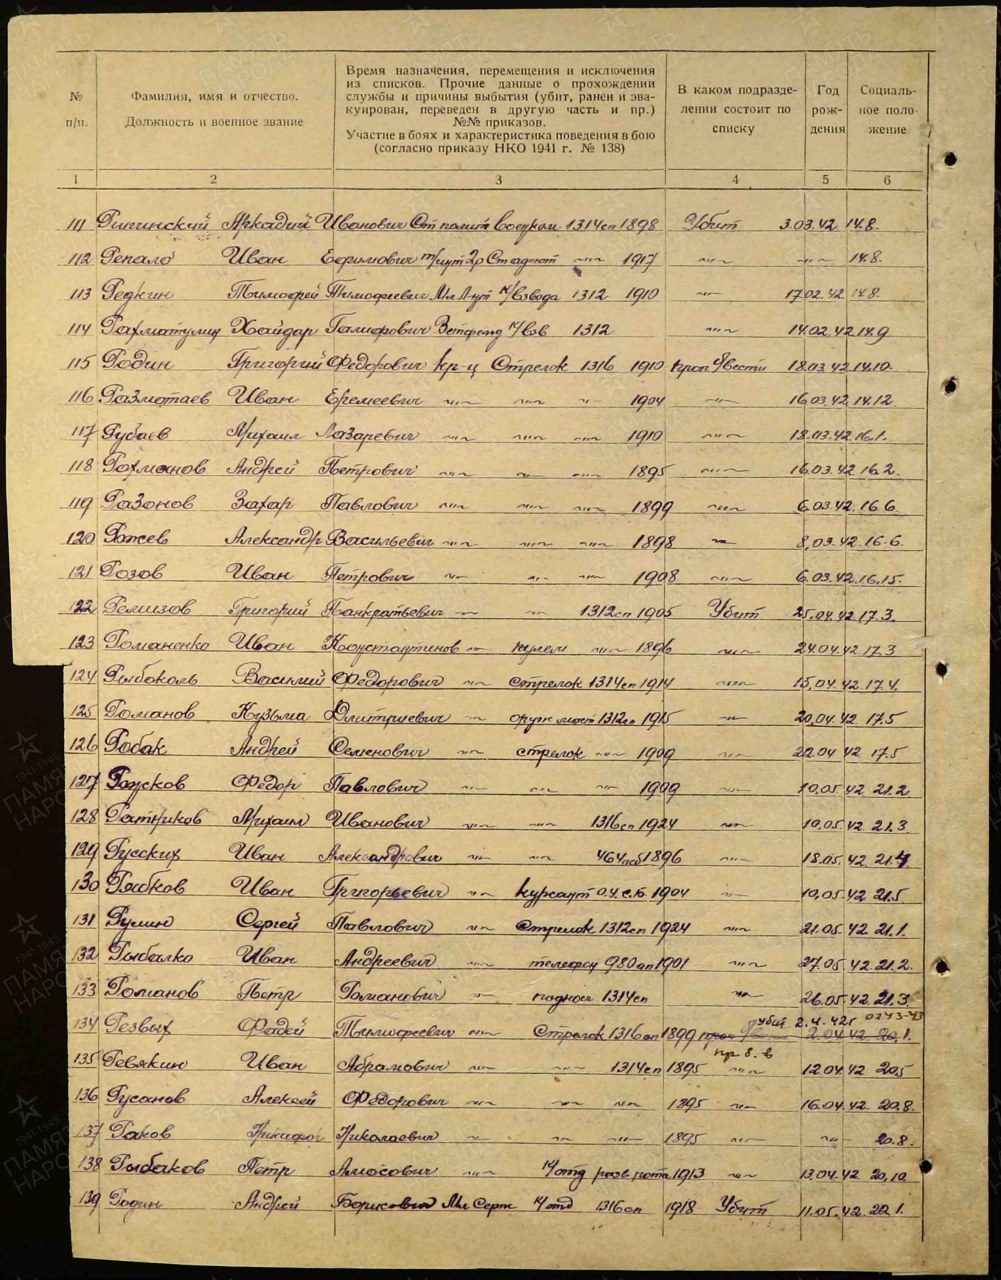 № п/п.
Фамилия, имя и отчество.
Должность и военное звание
Время назначения, перемещения и исключения
из списков. Прочие данные о прохождении
службы и причины выбытия (убит, ранен и эва-
куирован, переведен в другую часть и пр.)
№№ приказов.
Участие в боях и характеристика поведения в бою
(согласно приказу НКО 1941 г. № 138)
В каком подразде-
лении состоит по
списку
Год
рож-
дения
Социаль-
ное поло-
жение
1 2 3 4 5 6
111 Рипинский Аркадий Иванович Ст полит 1314сп 1898 Убит 3.03.42 14.8.
112 Репало Иван Ефимович 1917 -"- -"- 14.8.
113 Редкин Тимофей Тимофеевич Мл Л-нт к/взвода 1312 1910 -"- 17.02.42 14.8.
114 Хайдар 1312 -"- 14.02.42 14.9
115 Родин Григорий Федорович кр-ц Стрелок 1316 1910 проп б/вести 18.03.42 14.10.
116 Разматаев Иван Еремеевич -"- -"- -"- 1904 -"- 16.03.42 14.12
117 Рубаев Михаил Лазаревич -"- -"- -"- 1910 -"- 18.03.42 16.1.
118 Рохманов Андрей Петрович -"- -"- -"- 1895 -"- 16.03.42 16.2.
119 Разонов Захар Павлович -"- -"- -"- 1899 -"- 6.03.42. 16.6.
120 Ражев Александр Васильевич -"- -"- -"- 1898 -"- 8.03.42. 16.6.
121 Розов Иван Петрович -"- -"- -"- 1908 -"- 6.03.42. 16.15.
122 Ремизов Григорий Панкратьевич -"- 1312сп 1905 Убит 25.04.42 17.3.
123 Романенко Иван Константинов -"- -"- 1896 -"- 24.04.42 17.3
124 Рыбоколь Василий Федорович -"- стрелок 1314сп 1914 -"- 15.04.42 17.4.
125 Романов Кузьма Дмитриевич -"- 1312сп 1915 -"- 20.04.42 17.5
126 Робак Андрей Семенович -"- стрелок -"- 1909 -"- 22.04 42 17.5
127 Федор Павлович -"- -"- -"- 1909 -"- 10.05 42 21.2
128 Ратников Михаил Иванович -"- -"- 1316сп 1924 -"- 10.05.42 21.3
129 Русских Иван Александрович -"- -"- 1896 -"- 18.05.42 21.4
130 Рябков Иван Григорьевич -"- курсант 1904 -"- 10.05 42 21.5
131 Румин Сергей Павлович -"- Стрелок 1312сп 1924 -"- 21.05 42 21.1.
132 Рыбалко Иван Андреевич -"- телефон 980 ап 1901 -"- 27.05.42 21.2.
133 Романов Петр Романович -"- 1314сп -"- 26.05.42 21.3
убит 2.4.42г
134 Резвых Фадей Тимофеевич -"- Стрелок 1316сп 1899 2.04.42 20.1.
пр б. в
135 Ревякин Иван Абрамович -"- -"- 1314сп 1895 -"- 12.04 42 20.5
136 Русанов Алексей Федорович -"- -"- -"- 1895 -"- 16.04.42 20.8.
137 Раков Никифор Николаевич -"- -"- -"- 1895 -"- -"- 20.8.
138 Рыбаков Петр Амосович -"- к/отд разв рота 1913 -"- 13.04.42 20.10.
139 Родин Андрей Борисович Мл Серж к/отд 1316сп 1918 Убит 11.05.42. 22.1.